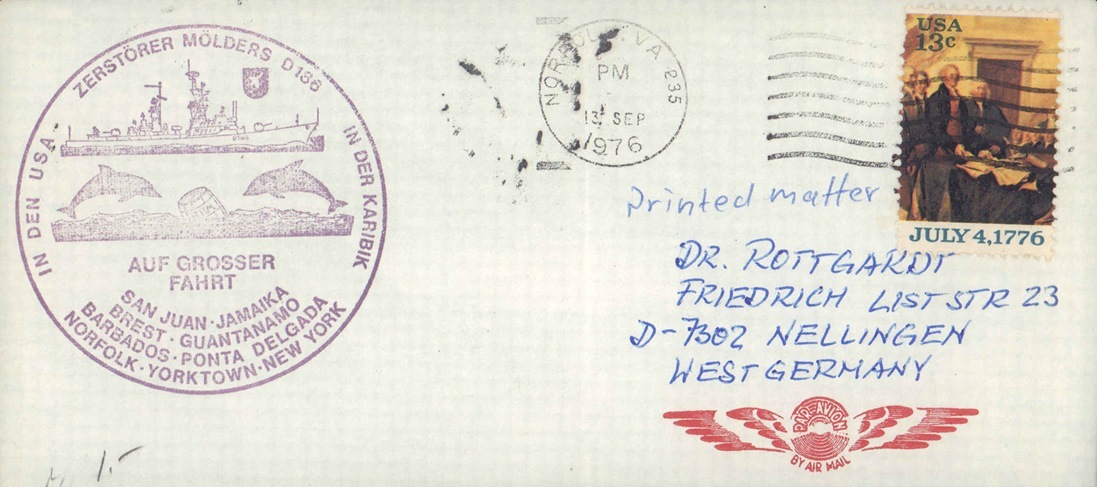 ZERSTÖRER MÖLDERS D186
IN DEN USA
IN DER KARIBIK
AUF GROSSER
FAHRT
SAN JUAN · JAMAIKA
BREST · GUANTANAMO
BARBADOS · PONTA DELGADA
NORFOLK · YORKTOWN · NEW YORK
NORFOLK, VA 235
PM
13 SEP
1976
USA
13c
JULY 4, 1776
Printed matter
DR. ROTTGARDT
FRIEDRICH LIST STR 23
D-7302 NELLINGEN
WEST GERMANY
PAR AVION
BY AIR MAIL